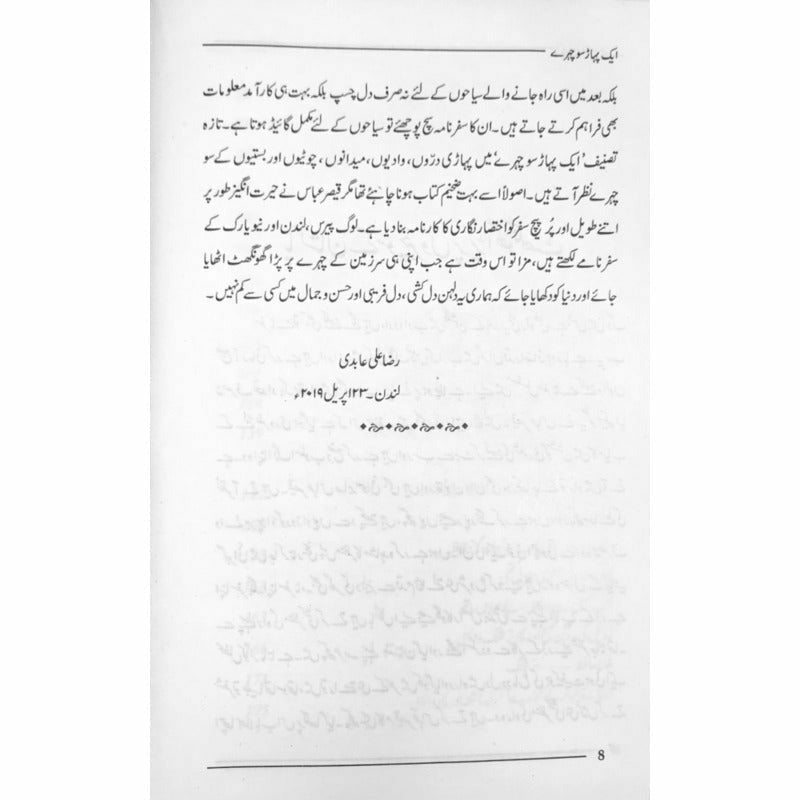 ایک پہاڑ سو چہرے
بلکہ بعد میں اسی راہ جانے والے سیاحوں کے لئے نہ صرف دل چسپ بلکہ بہت ہی کارآمد معلومات
بھی فراہم کرتے جاتے ہیں۔ ان کا سفرنامہ سچ پوچھئے تو سیاحوں کے لئے مکمل گائیڈ ہوتا ہے۔ تازہ
تصنیف 'ایک پہاڑ سو چہرے' میں پہاڑی درّوں، وادیوں، میدانوں، چوٹیوں اور بستیوں کے سو
چہرے نظر آتے ہیں۔ اصولاً اسے بہت ضخیم کتاب ہونا چاہئے تھا مگر قیصر عباس نے حیرت انگیز طور پر
اتنے طویل اور پُر پیچ سفر کو اختصار نگاری کا کارنامہ بنا دیا ہے۔ لوگ پیرس، لندن اور نیویارک کے
سفرنامے لکھتے ہیں، مزا تو اس وقت ہے جب اپنی ہی سرزمین کے چہرے پر پڑا گھونگھٹ اٹھایا
جائے اور دنیا کو دکھایا جائے کہ ہماری یہ دلہن دل کشی، دل فریبی اور حسن و جمال میں کسی سے کم نہیں۔
رضا علی عابدی
لندن۔ ۲۳ اپریل ۲۰۱۹ء
8